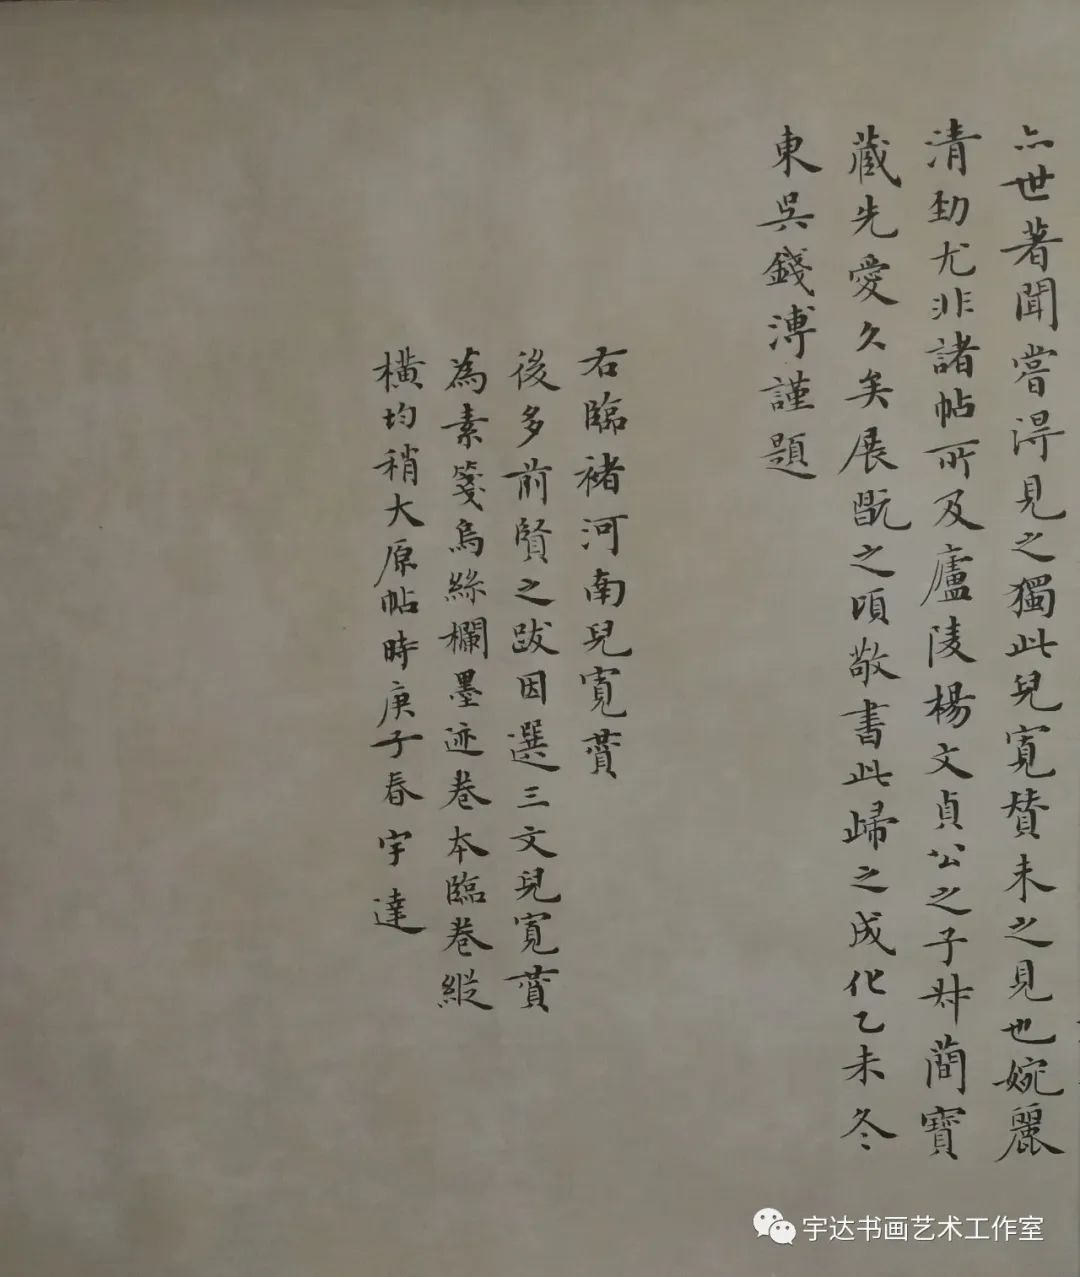 亦世著聞嘗得見之獨此兒寬贊未之見也婉麗
清勁尤非諸帖所及廬陵楊文貞公之子叔簡寶
藏先愛久矣展翫之頃敬書此歸之成化乙未冬
東吳錢溥謹題
右臨褚河南兒寬贊
後多前賢之跋因選三文兒寬贊
為素箋烏絲欄墨迹卷本臨卷縱
橫均稍大原帖時庚子春宇達
宇达书画艺术工作室